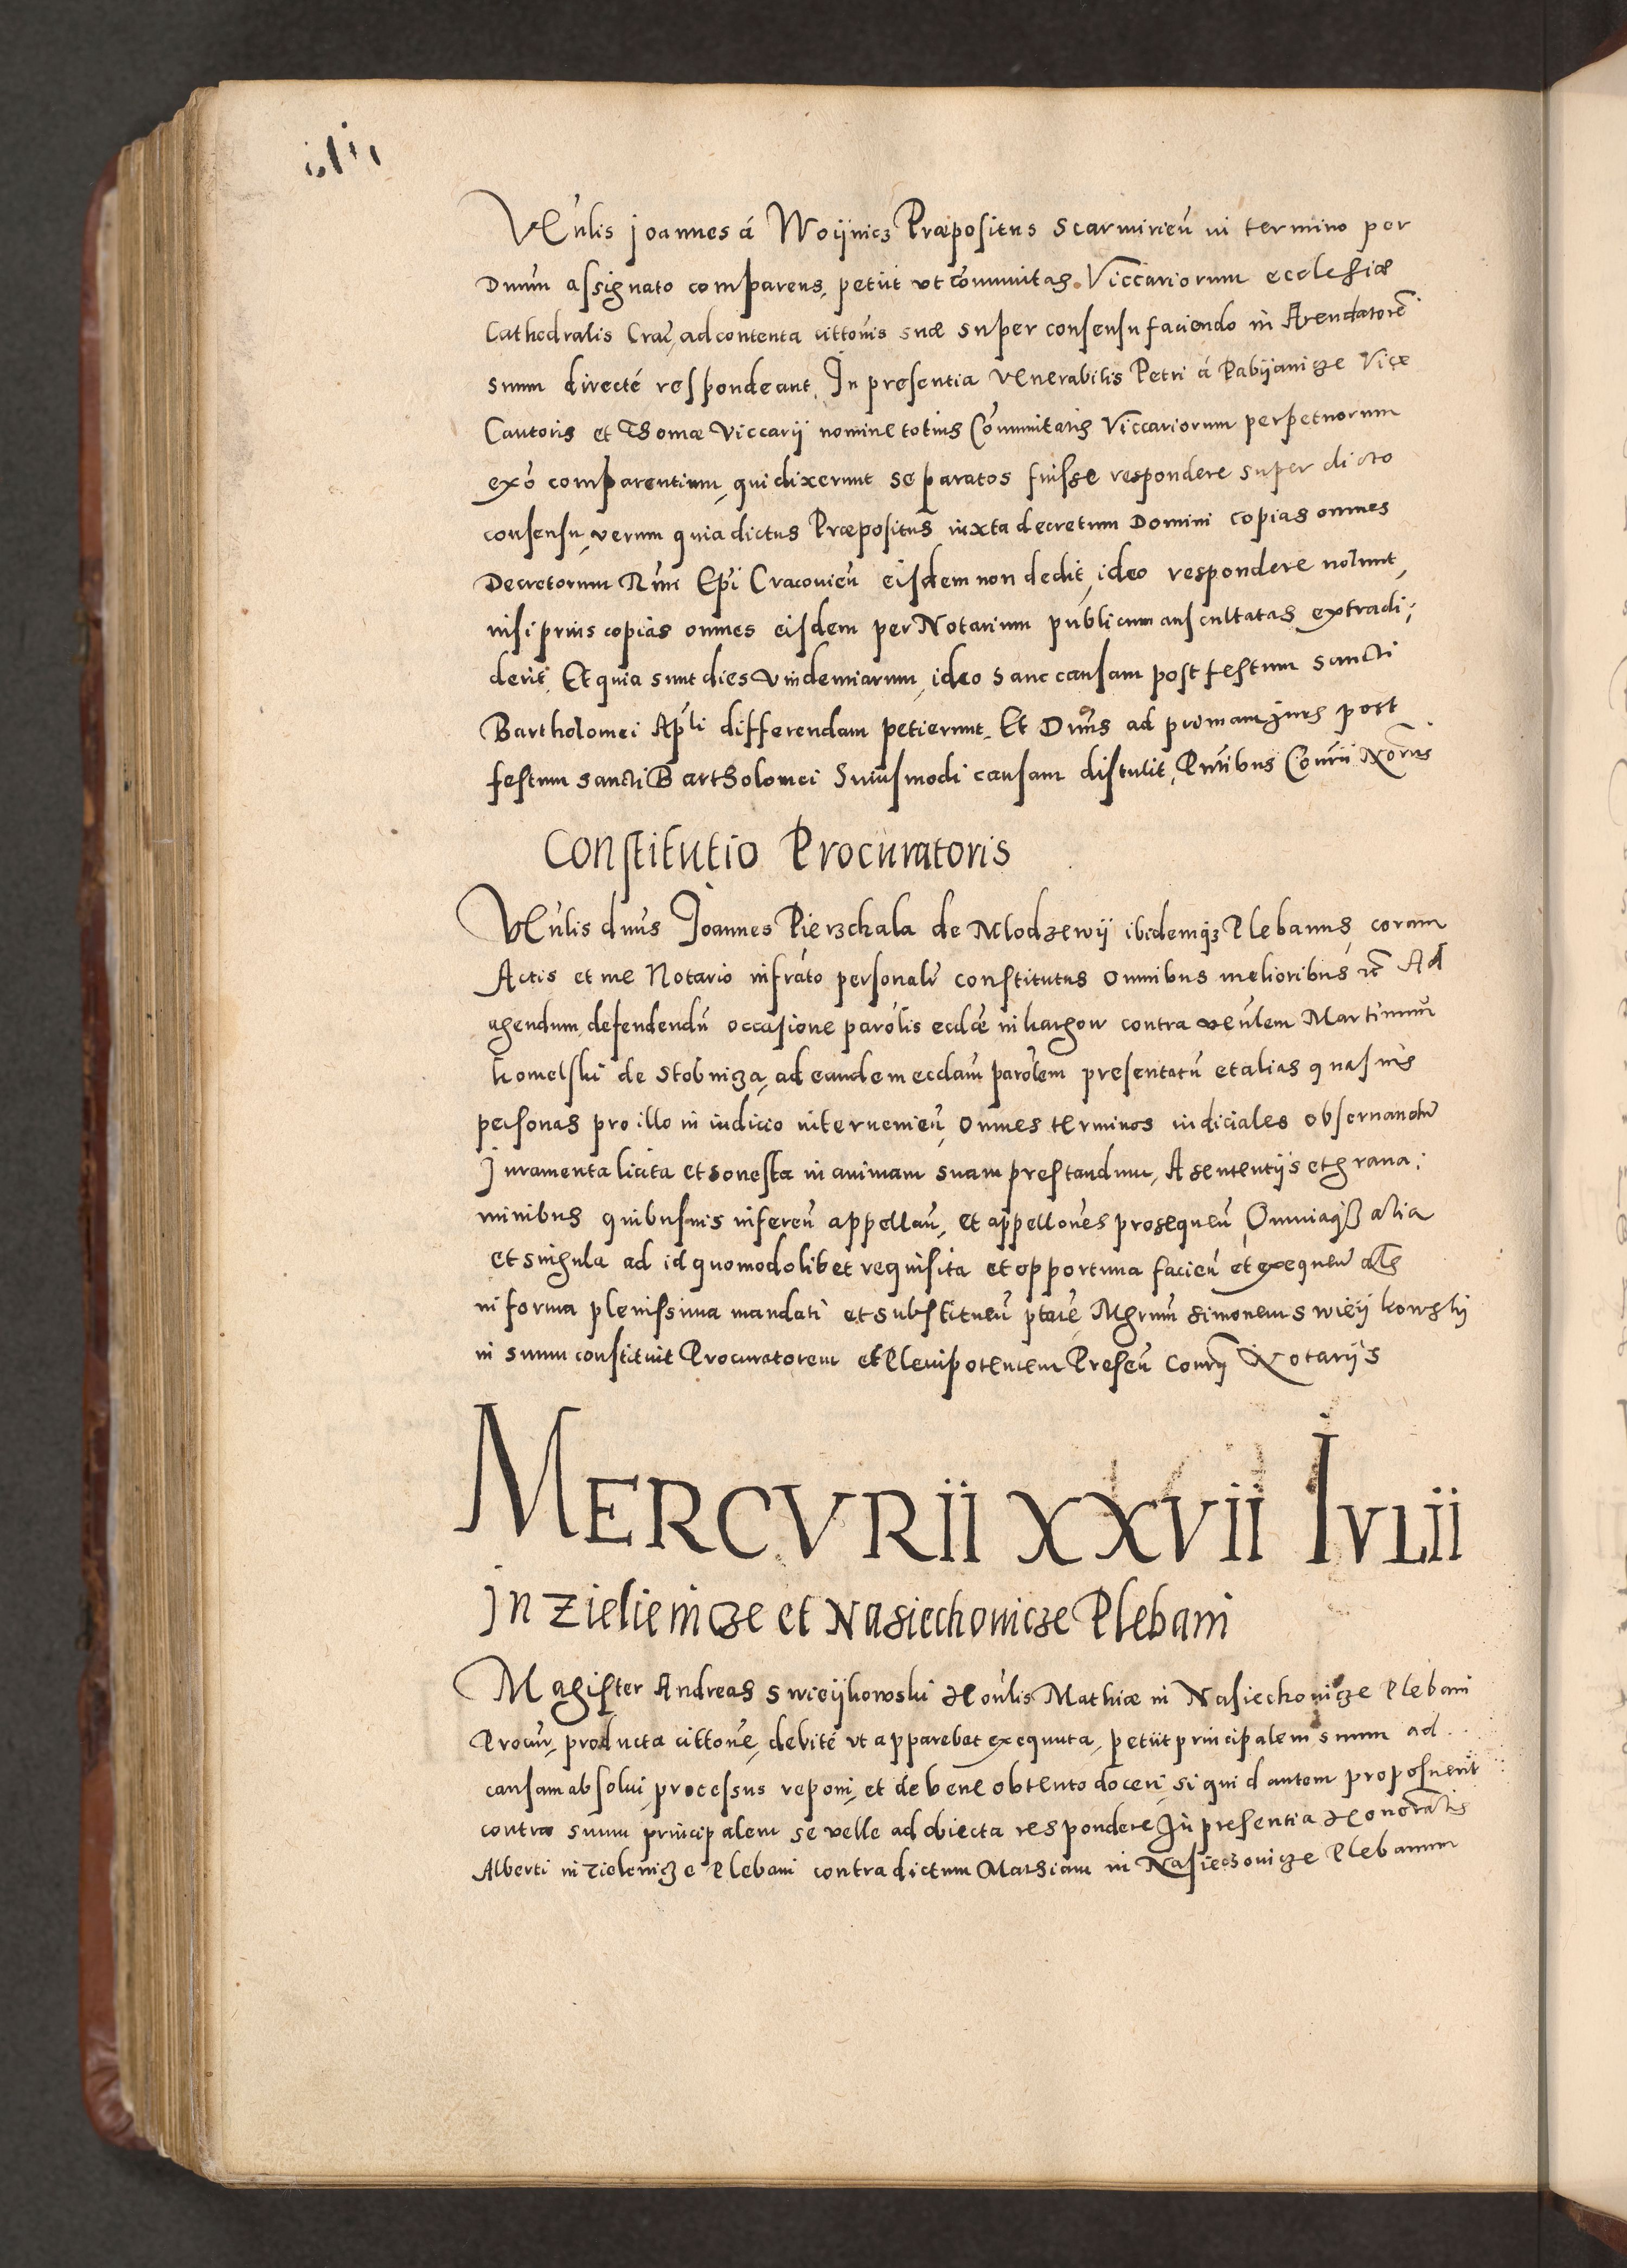 VEnlis Joannes á Woijnicz Præpositus Scarmirieñ in termino per
Dnum assignato comparens, petiit vt communitas Viccariorum ecclesiæ
Cathedralis Crac, ad contenta cittonis suæ super consensu faciendo in Arendatorē
suum directé respondeant. In presentia venerabilis Petri á Pabijanicze Vice
Cantoris et Thomæ Viccarij nomine totius Cōmunitatis Viccariorum perpetuorum
ex°o comparentium, qui dixerunt se paratos fuisse respondere super dicto
consensu, verum quia dictus Præpositus iuxta decretum Domini copias omnes
Decretorum Rmi Epi Cracouieñ eisdem non dedit, ideo respondere nolunt,
nisi prius copias omnes eisdem per Notarium publicum auscultatas extradi;
derit, Et quia sunt dies vindemiarum, ideo hanc causam post festum sancti
Bartholomei Apli differendam petierunt. Et Dnus ad primam Juris post
festum sancti Bartholomei huiusmodi causam distulit, Pntibus Conrii Noriis
Constitutio Procuratoris
VEnlis dnus Joannes Pierzchala de Mlodzewij ibidemqz Plebanus, coram
Actis et me Notario infrato personalr constitutus omnibus melioribus etc Ad
agendum, defendendū occasione parolis ecclæ in kargow contra venlem Martinum
komelski de Stobnicza, ad eandem eccliam parolem presentatū et alias quasuis
personas pro illo in iudicio interuenieñ, omnes terminos iudiciales obseruandū
Juramenta licita et honesta in animam suam prestandum, A sententijs et graua;
minibus quibusuis infereñ appellañ, et appellones prosequeñ, Omniaqz alia
et singula ad id quomodolibet requisita et opportuna facieñ et exequeñ als
in forma plenissima mandati et substitueñ ptate, Mgrum Simonem Swieijkowskij
in suum constituit Procuratorem et Plenipotentem Preseñ Conrij Notarijs
MERCVRII XXVII IVLII
Jn Zielienicze et Nasiechowicze Plebani
Magister Andreas Swieijkowski Honlis Mathiæ in Nasiechowicze Plebani
Procur, producta cittone, debité vt apparebat exequuta, petiit principalem suum ad
causam absolui, processus reponi, et de bene obtento doceri, si quid autem proposuerit
contra suum principalem se velle ad obiecta respondere, In presentia Honoratis
Alberti in Zielenicze Plebani contra dictum Mathiam in Nasiechowicze Plebanum